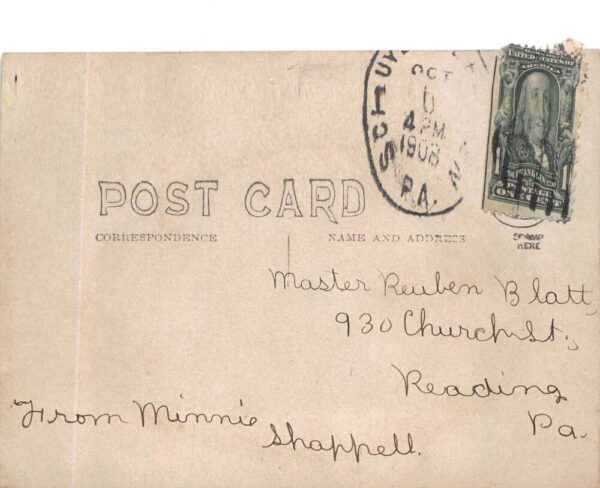 OCT
4 PM
1908
PA.
UNITED STATES OF
AMERICA
FRANKLIN
POSTAGE
POST CARD
CORRESPONDENCE
NAME AND ADDRESS
STAMP
HERE
Master Reuben Blatt,
930 Church St.,
Reading
Pa.
From Minnie
Shappell.